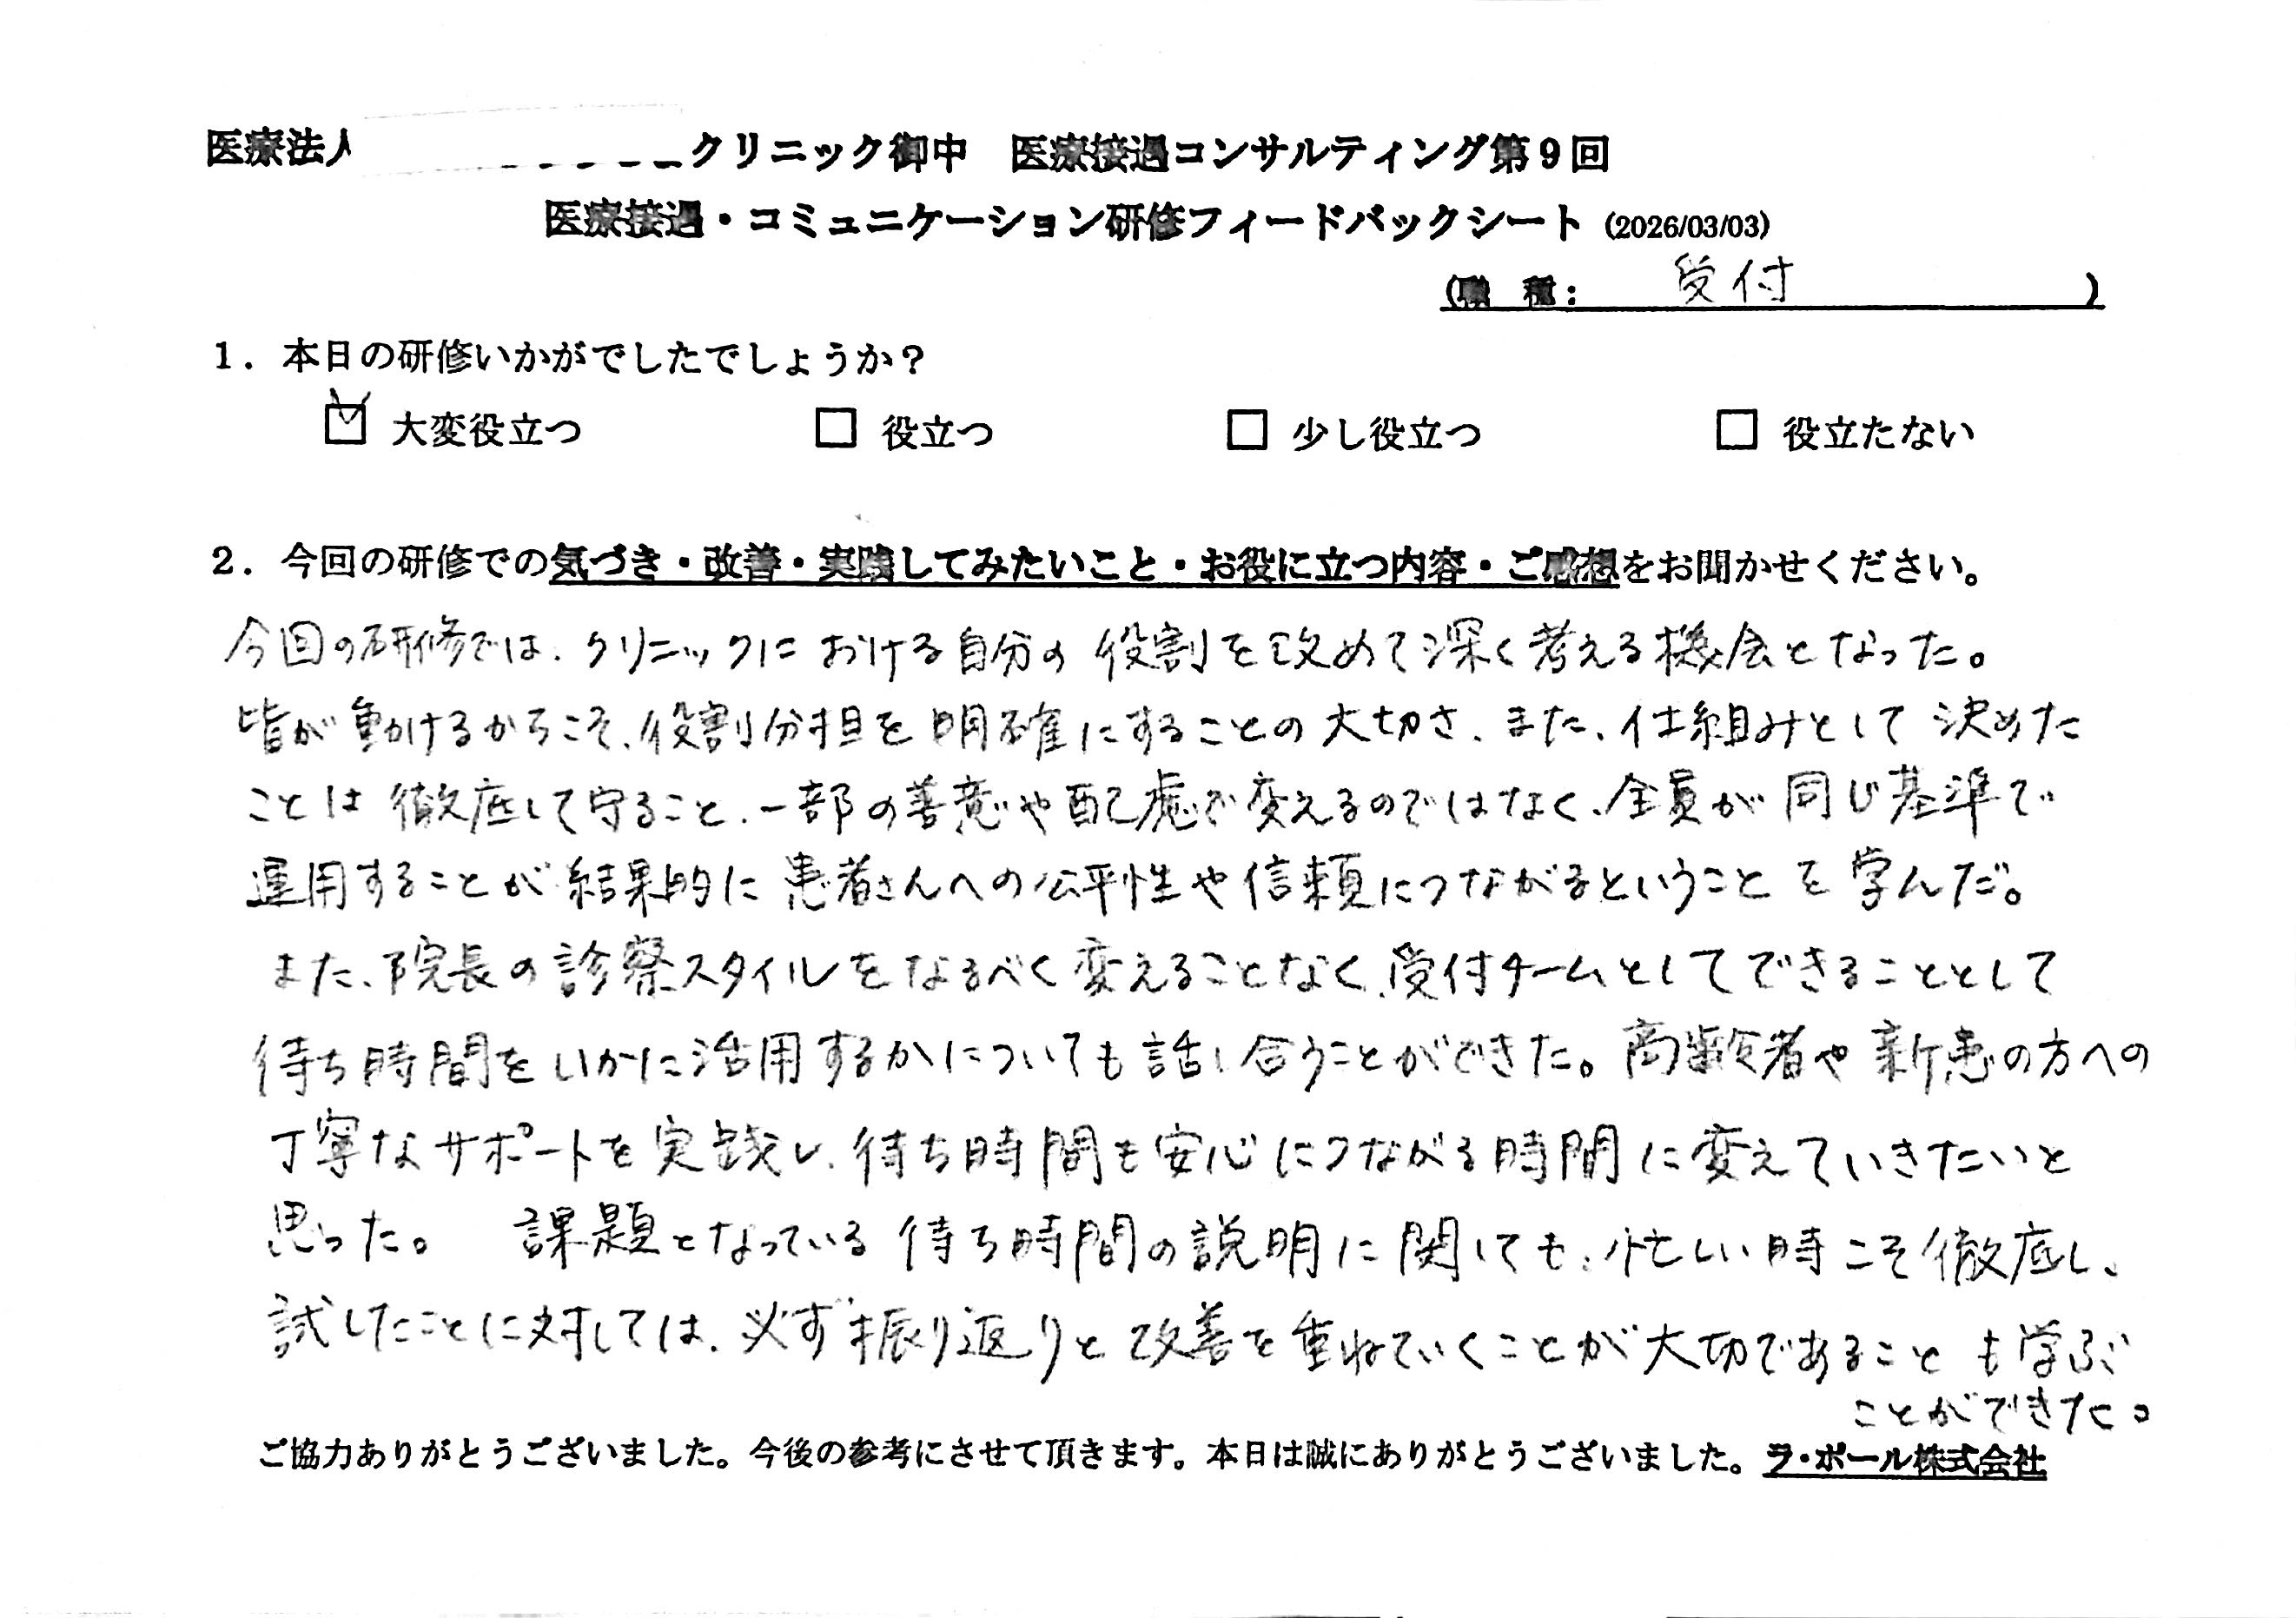 医療法人 クリニック御中 医療接遇コンサルティング第9回
医療接遇・コミュニケーション研修フィードバックシート (2026/03/03)
(職 種: 受付 )
1. 本日の研修いかがでしたでしょうか?
☑ 大変役立つ □ 役立つ □ 少し役立つ □ 役立たない
2. 今回の研修での気づき・改善・実践してみたいこと・お役に立つ内容・ご感想をお聞かせください。
今回の研修では、クリニックにおける自分の役割を改めて深く考える機会となった。
皆が動けるからこそ、役割分担を明確にすることの大切さ、また、仕組みとして決めた
ことは徹底して守ること、一部の善意や配慮で変えるのではなく、全員が同じ基準で
運用することが結果的に患者さんへの公平性や信頼につながるということを学んだ。
また、院長の診察スタイルをなるべく変えることなく、受付チームとしてできることとして
待ち時間をいかに活用するかについても話し合うことができた。高齢者や新患の方への
丁寧なサポートを実践し、待ち時間も安心につながる時間に変えていきたいと
思った。 課題となっている待ち時間の説明に関しても、忙しい時こそ徹底し、
試したことに対しては、必ず振り返りと改善を重ねていくことが大切であることも学ぶ
ことができた。
ご協力ありがとうございました。今後の参考にさせて頂きます。本日は誠にありがとうございました。ラ・ポール株式会社